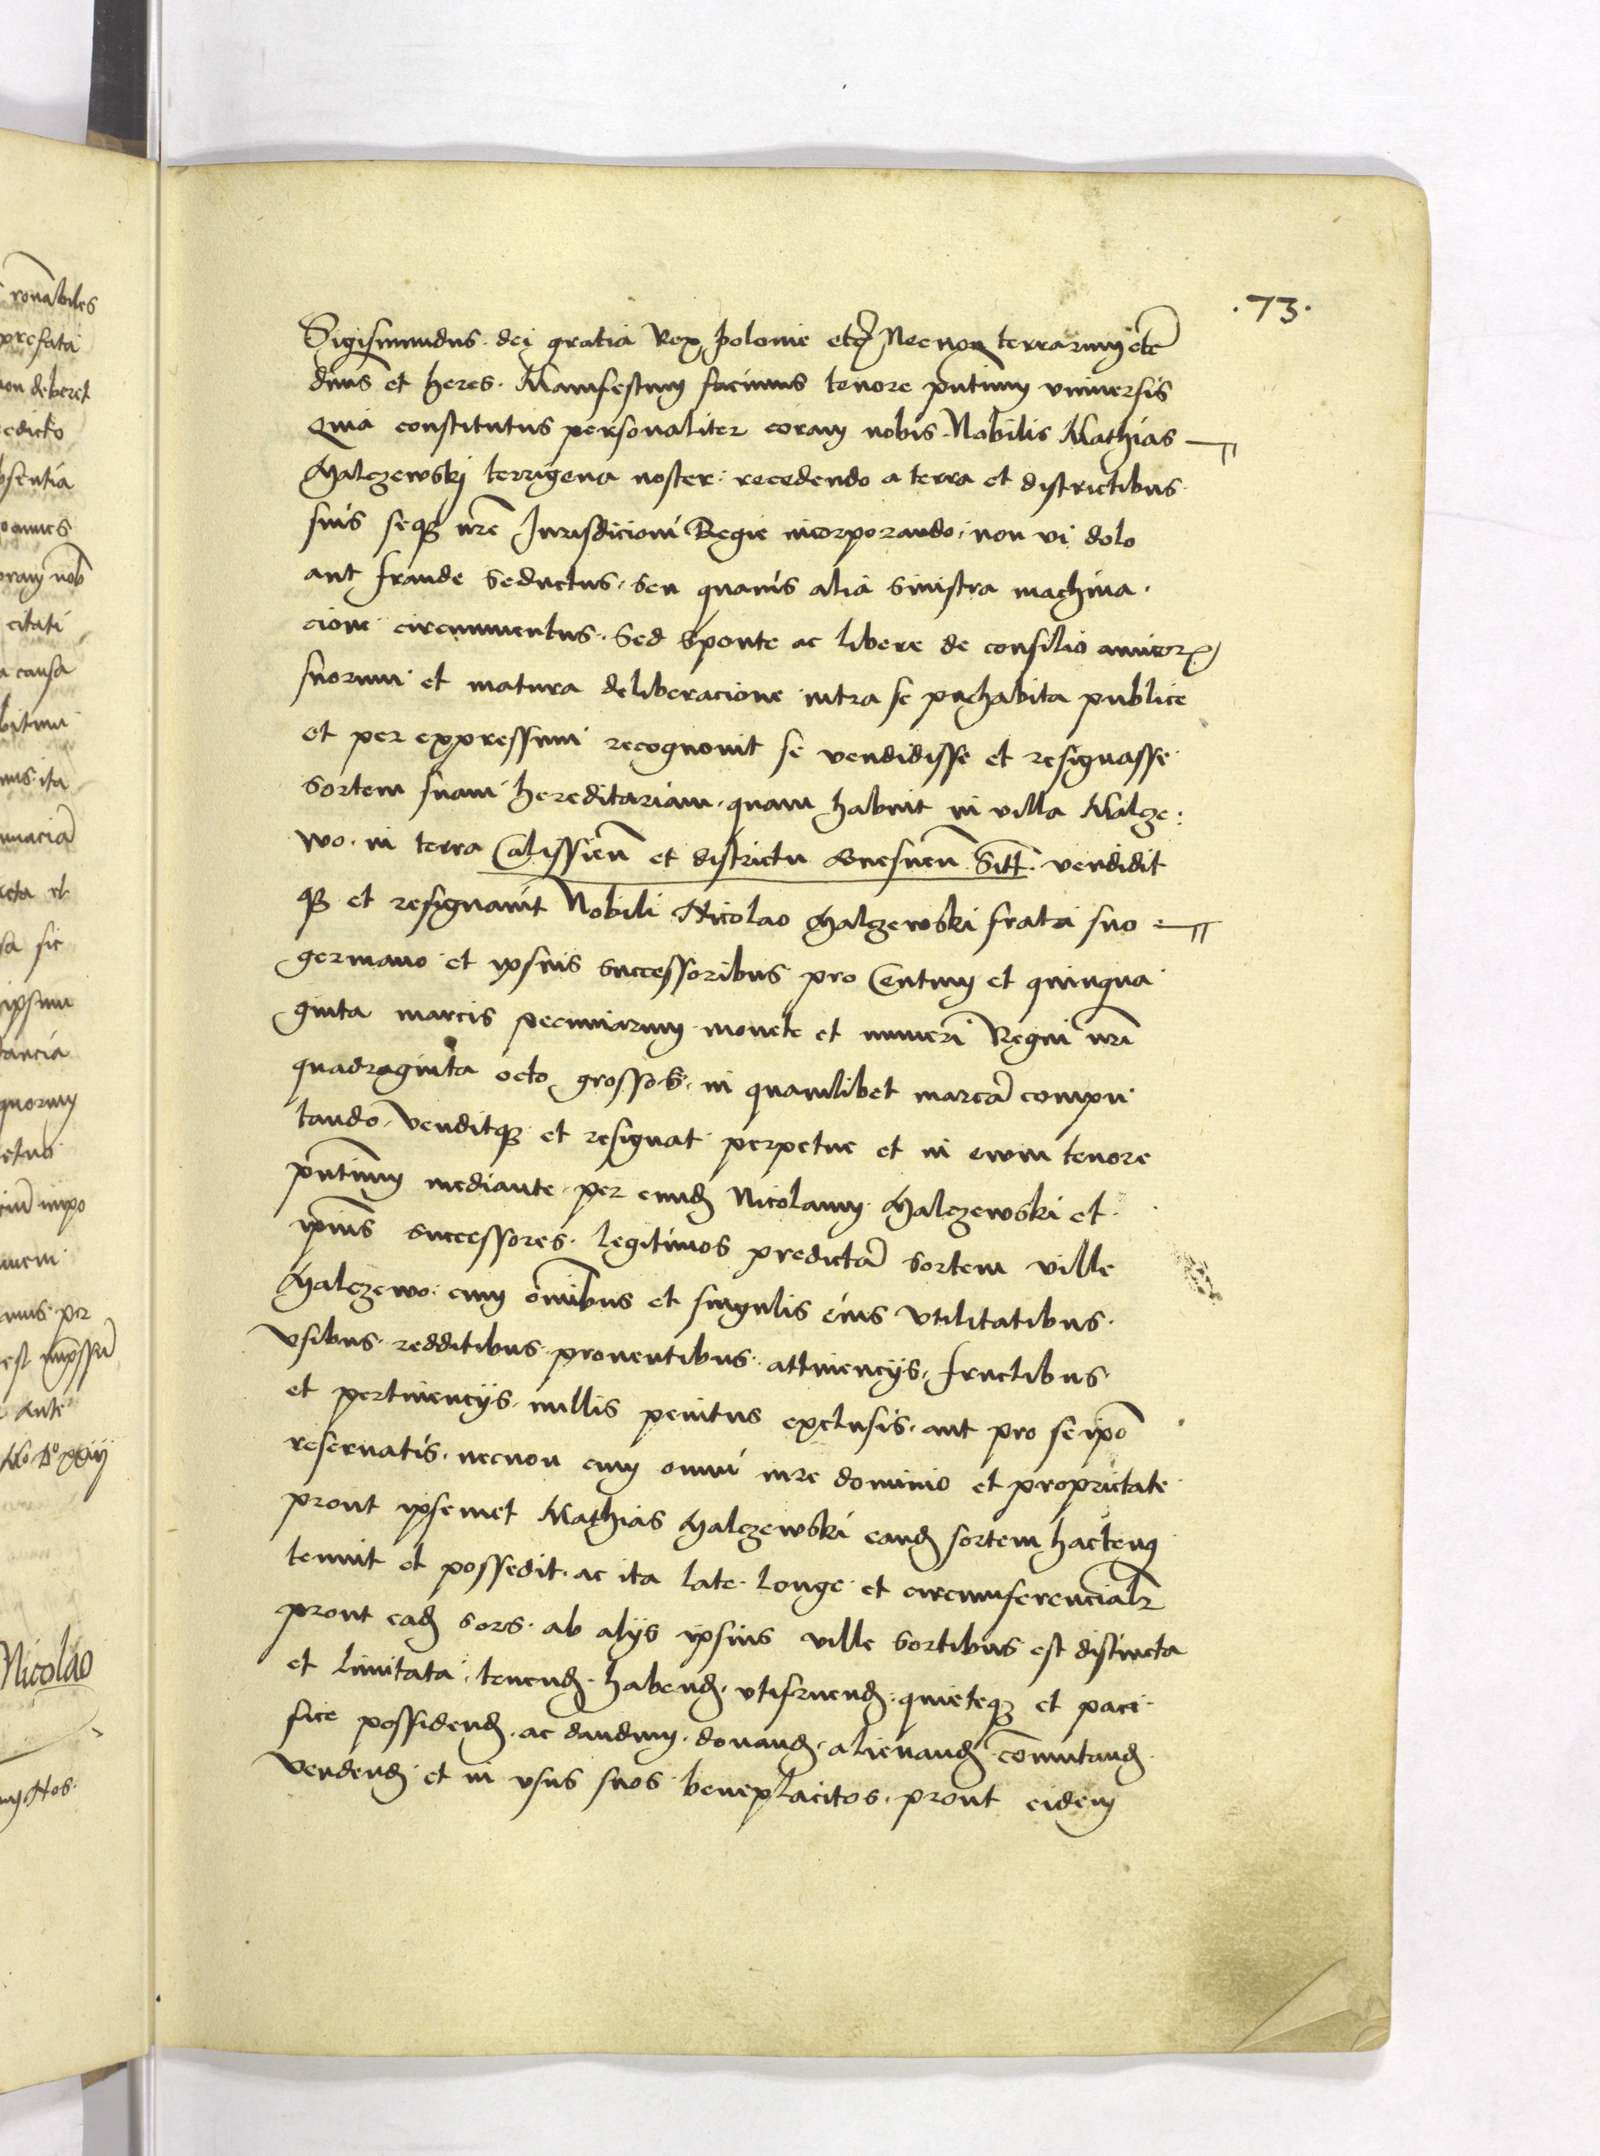 .73.
Sigismundus dei gratia Rex polonie etc Necnon terrarum etc
dnus et heres. Manifestum facimus tenore pntium vniversis
Quia constitutus personaliter coram nobis Nobilis Mathias
Malczewskj terrigena noster recedendo a terra et districtibus
suis seqз nre Jurisdicioni Regie incorporando. non vi dolo
aut fraude seductus. seu quavis alia sinistra machina.
cione circumventus. Sed sponte ac libere de consilio amicorꝝ
suorum et matura deliberacione intra se prehabita publice
et per expressum recognovit se vendidisse et resignasse
sortem suam hereditariam. quam habuit in villa Malcze:
wo. in terra Calissien et districtu Gnesnen Sitt. vendidit
qз et resignavit Nobili Nicolao Malczewski fratri suo
germano et ipsius successoribus pro Centum et quinqua
ginta marcis pecuniarum monete et numeri Regni nri
quadraginta octo grossos. in quamlibet marca compu
tando. venditqз et resignat perpetue et in evum tenore
pntium mediante. per eund Nicolaum Malczewski et
ipius successores. legitimos predicta sortem ville
Malczewo. cum omibus et singulis eius vtilitatibus.
vsibus. redditibus. proventibus. attinencijs. fructibus
et pertinencijs. nullis penitus exclusis. aut pro se ipo
reservatis. necnon cum omni iure dominio et proprietate
prout ipsemet Mathias Malczewski eand sortem hactenꝰ
tenuit et possedit. ac ita late. longe et circumferencialr
prout ead sors. ab alijs ipsius ville sortibus est distincta
et limitata. tenend. habend. vtifruend. quieteqз et paci
fice possidend. ac dandum. donand. alienand. comutand.
vendend et in vsus suos beneplacitos. prout eidem